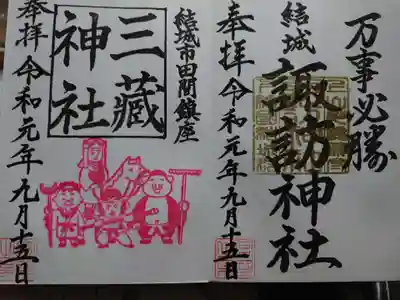 万事必勝
結城
諏訪神社
奉拝令和元年九月十五日
結城市田間鎮座
三藏
神社
奉拝令和元年九月十五日